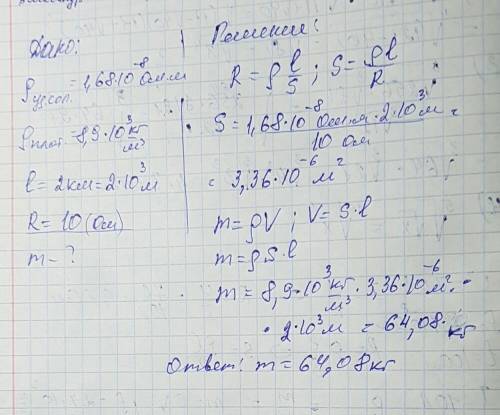 Дано:
ρудсоп. = 1,68·10⁻⁸ Ом·м
ρплот = 8,9·10³ кг/м³
l = 2км = 2·10³ м
R = 10 (Ом)
m - ?
Решение:
R = ρ l/S ; S = ρl/R
S = 1,68·10⁻⁸ Ом·м · 2·10³ м / 10 Ом =
= 3,36·10⁻⁶ м²
m = ρV ; V = S·l
m = ρS·l
m = 8,9·10³ кг/м³ · 3,36·10⁻⁶ м² ·
· 2·10³ м = 64,08 · кг
Ответ: m = 64,08 кг